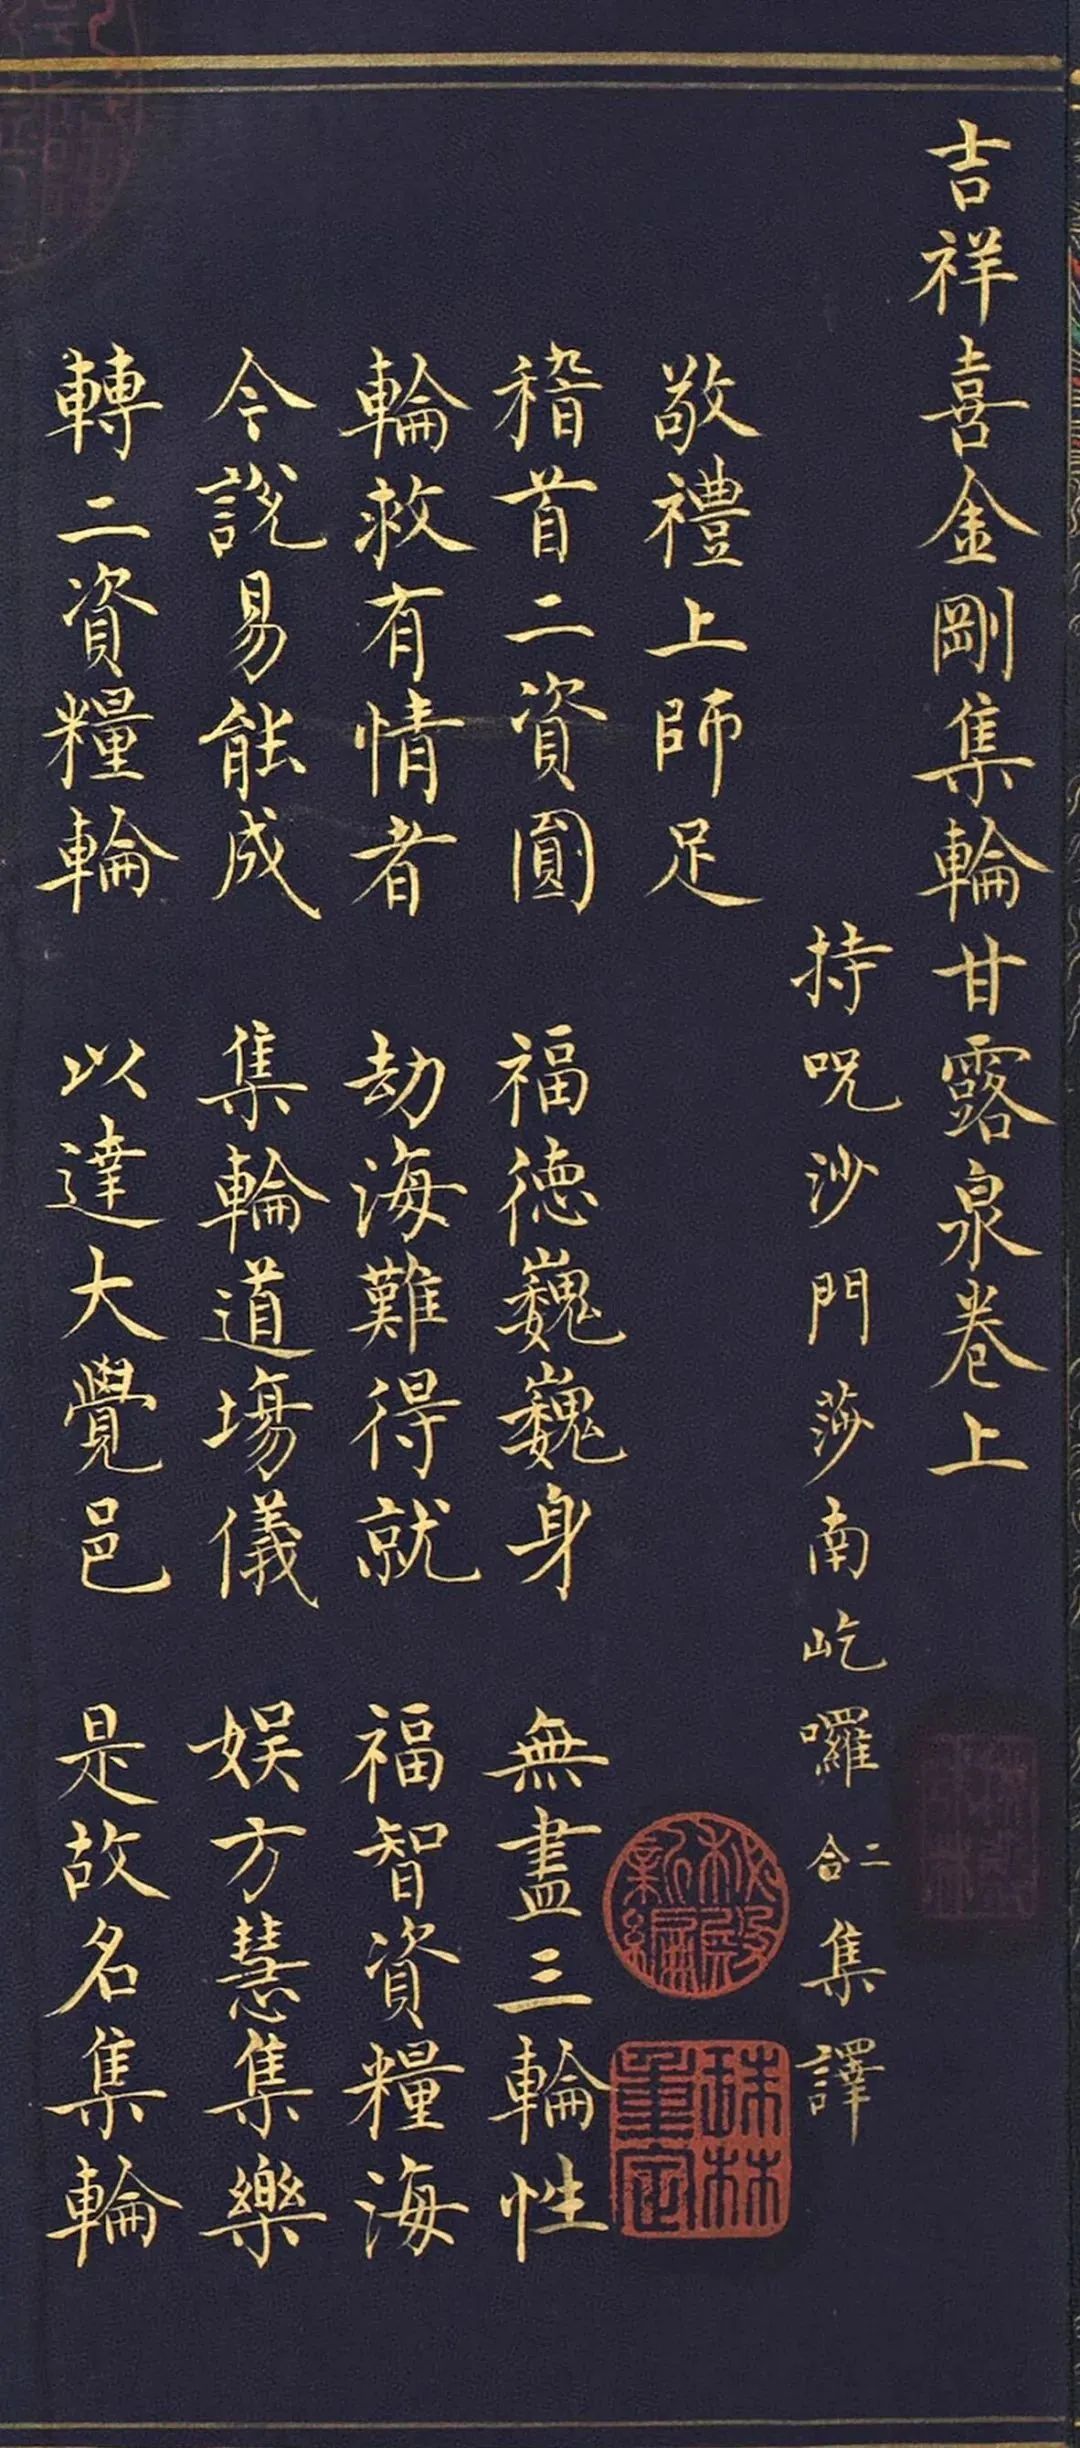 吉祥喜金剛集輪甘露泉卷上
持呪沙門莎南屹囉二合集譯
敬禮上師足
稽首二資圓 福德巍巍身 無盡三輪性
輪救有情者 劫海難得就 福智資糧海
今說易能成 集輪道場儀 娯方慧集樂
轉二資糧輪 以達大覺邑 是故名集輪
秘殿新編
珠林重定